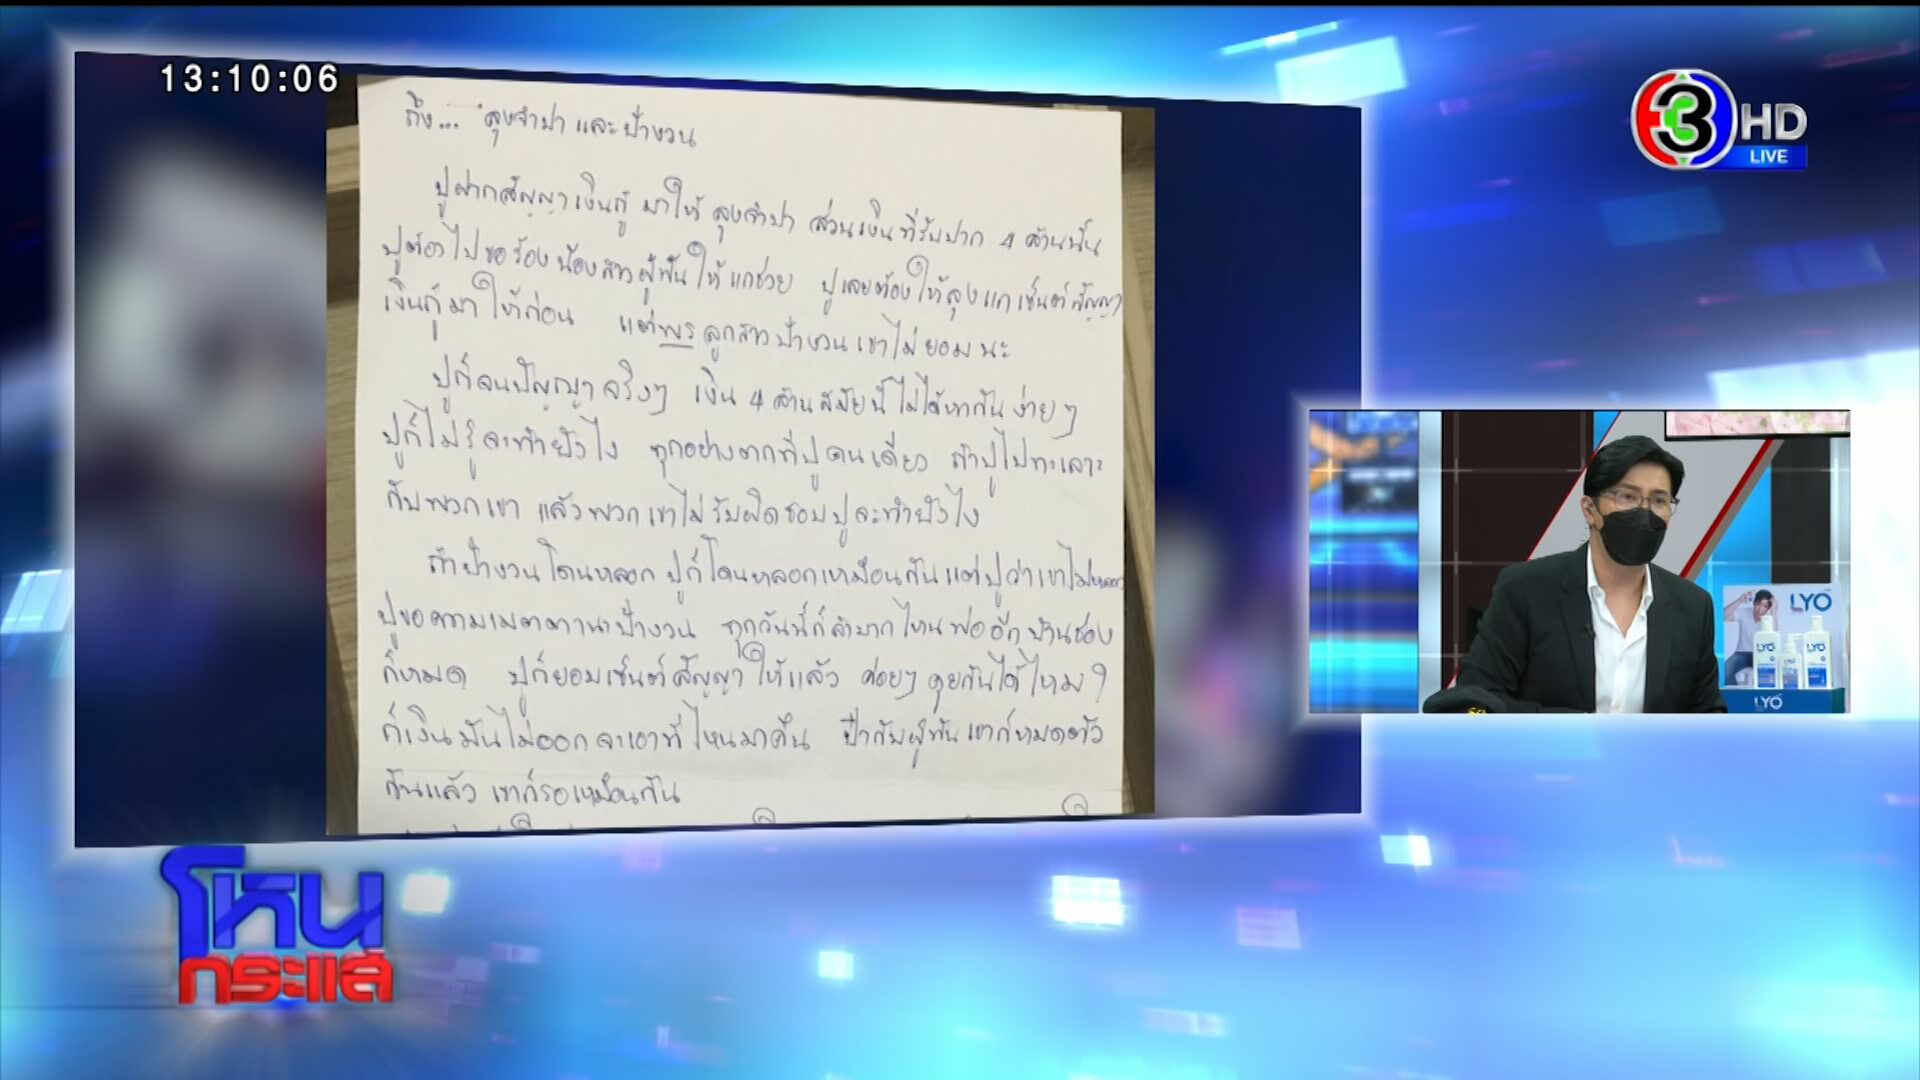 13:10:06
3 HD
LIVE
ถึง... ลุงจำปา และป้างวน
ปูฝากสัญญาเงินกู้ มาให้ ลุงจำปา ส่วนเงินที่รับปาก 4 ล้านนั้น
ปูต้องไปขอร้องน้องสาวผู้พันให้แกช่วย ปูเลยต้องให้ลุงแกเซ็นต์สัญญา
เงินกู้มาให้ก่อน แต่พรลูกสาวป้างวนเขาไม่ยอมนะ
ปูก็จนปัญญาจริงๆ เงิน 4 ล้านสมัยนี้ไม่ได้หากันง่ายๆ
ปูก็ไม่รู้จะทำยังไง ทุกอย่างตกที่ปูคนเดียว ถ้าปูไปทะเลาะ
กับพวกเขา แล้วพวกเขาไม่รับผิดชอบปูจะทำยังไง
ถ้าป้างวนโดนหลอก ปูก็โดนหลอกเหมือนกันแต่ปูว่าเขาไม่หลอก
ปูขอความเมตตานะป้างวน ทุกวันนี้ก็ลำบากไหนพ่ออีก บ้านช่อง
ก็หมด ปูก็ยอมเซ็นต์สัญญาให้แล้ว ค่อยๆ คุยกันได้ไหม?
ก็เงินมันไม่ออกจะเอาที่ไหนมาคืน ป๊ากับผู้พันเขาก็หมดตัว
กันแล้ว เขาก็รอเหมือนกัน
LYO
LYO
LYO
LYO
โหน
กระแส